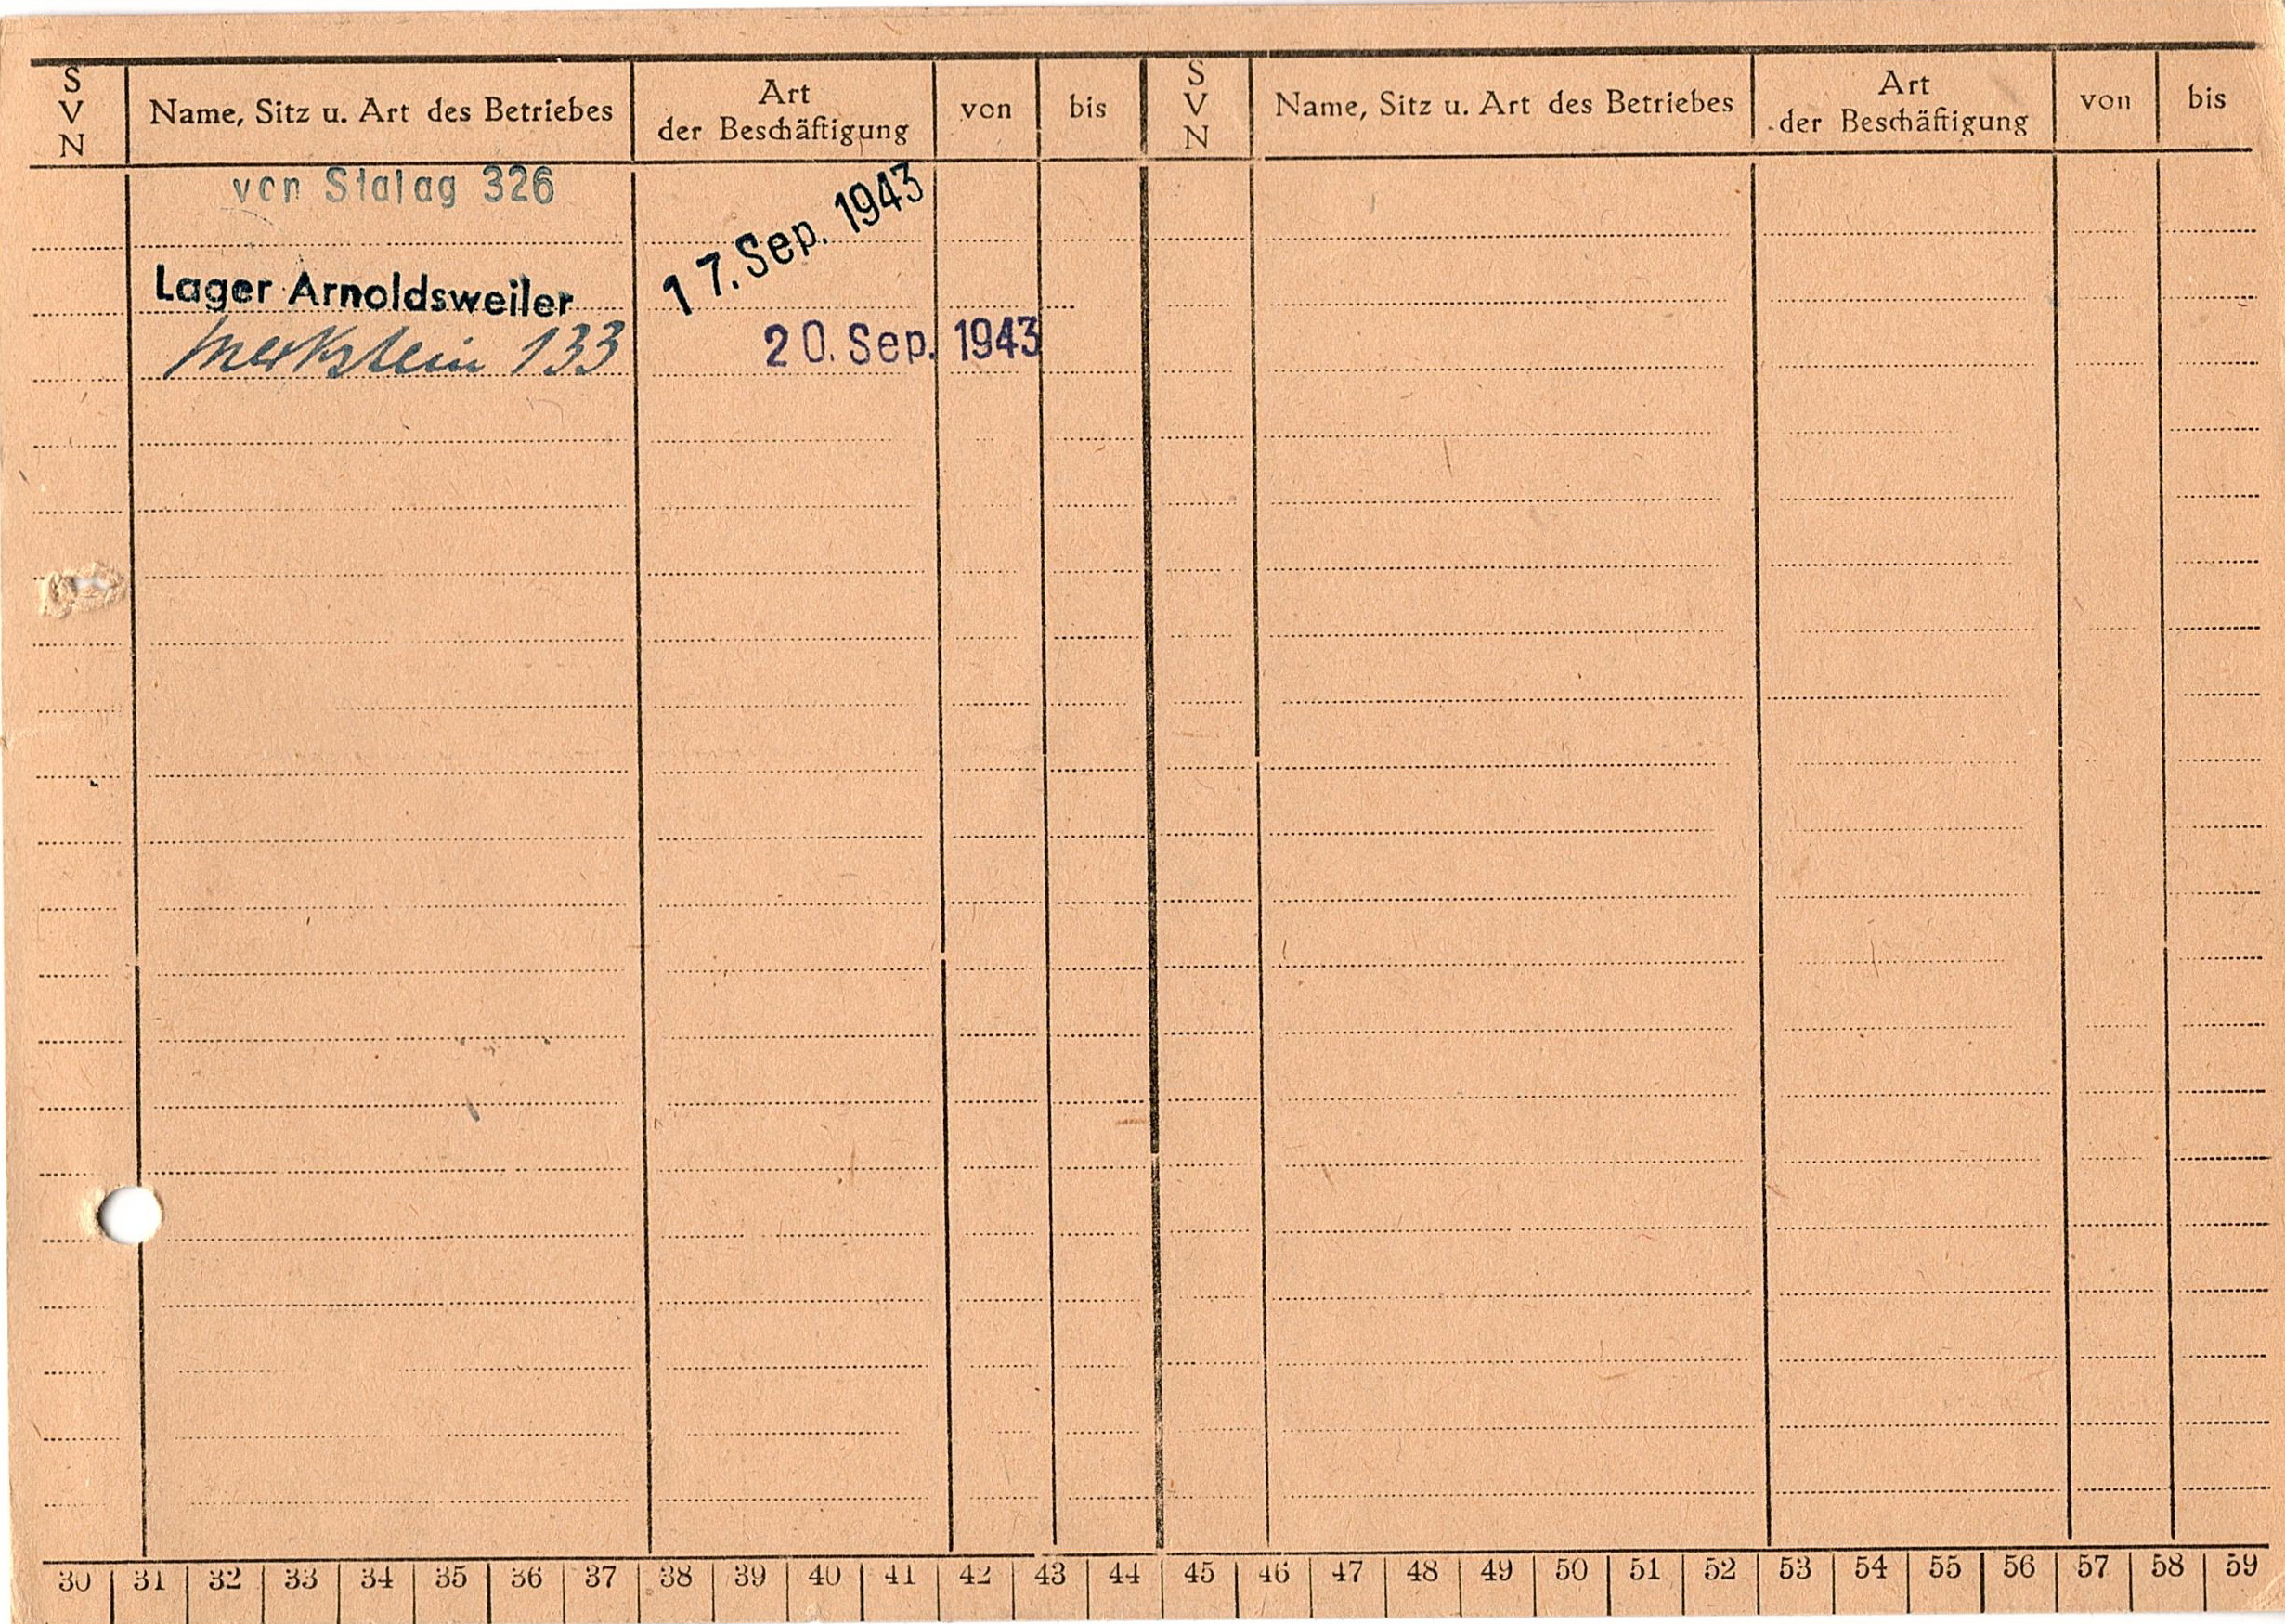 S V N Name, Sitz u. Art des Betriebes Art der Beschäftigung von bis S V N Name, Sitz u. Art des Betriebes Art der Beschäftigung von bis
von Stalag 326
Lager Arnoldsweiler 17. Sep. 1943
Merkstein 133 20. Sep. 1943
30 31 32 33 34 35 36 37 38 39 40 41 42 43 44 45 46 47 48 49 50 51 52 53 54 55 56 57 58 59